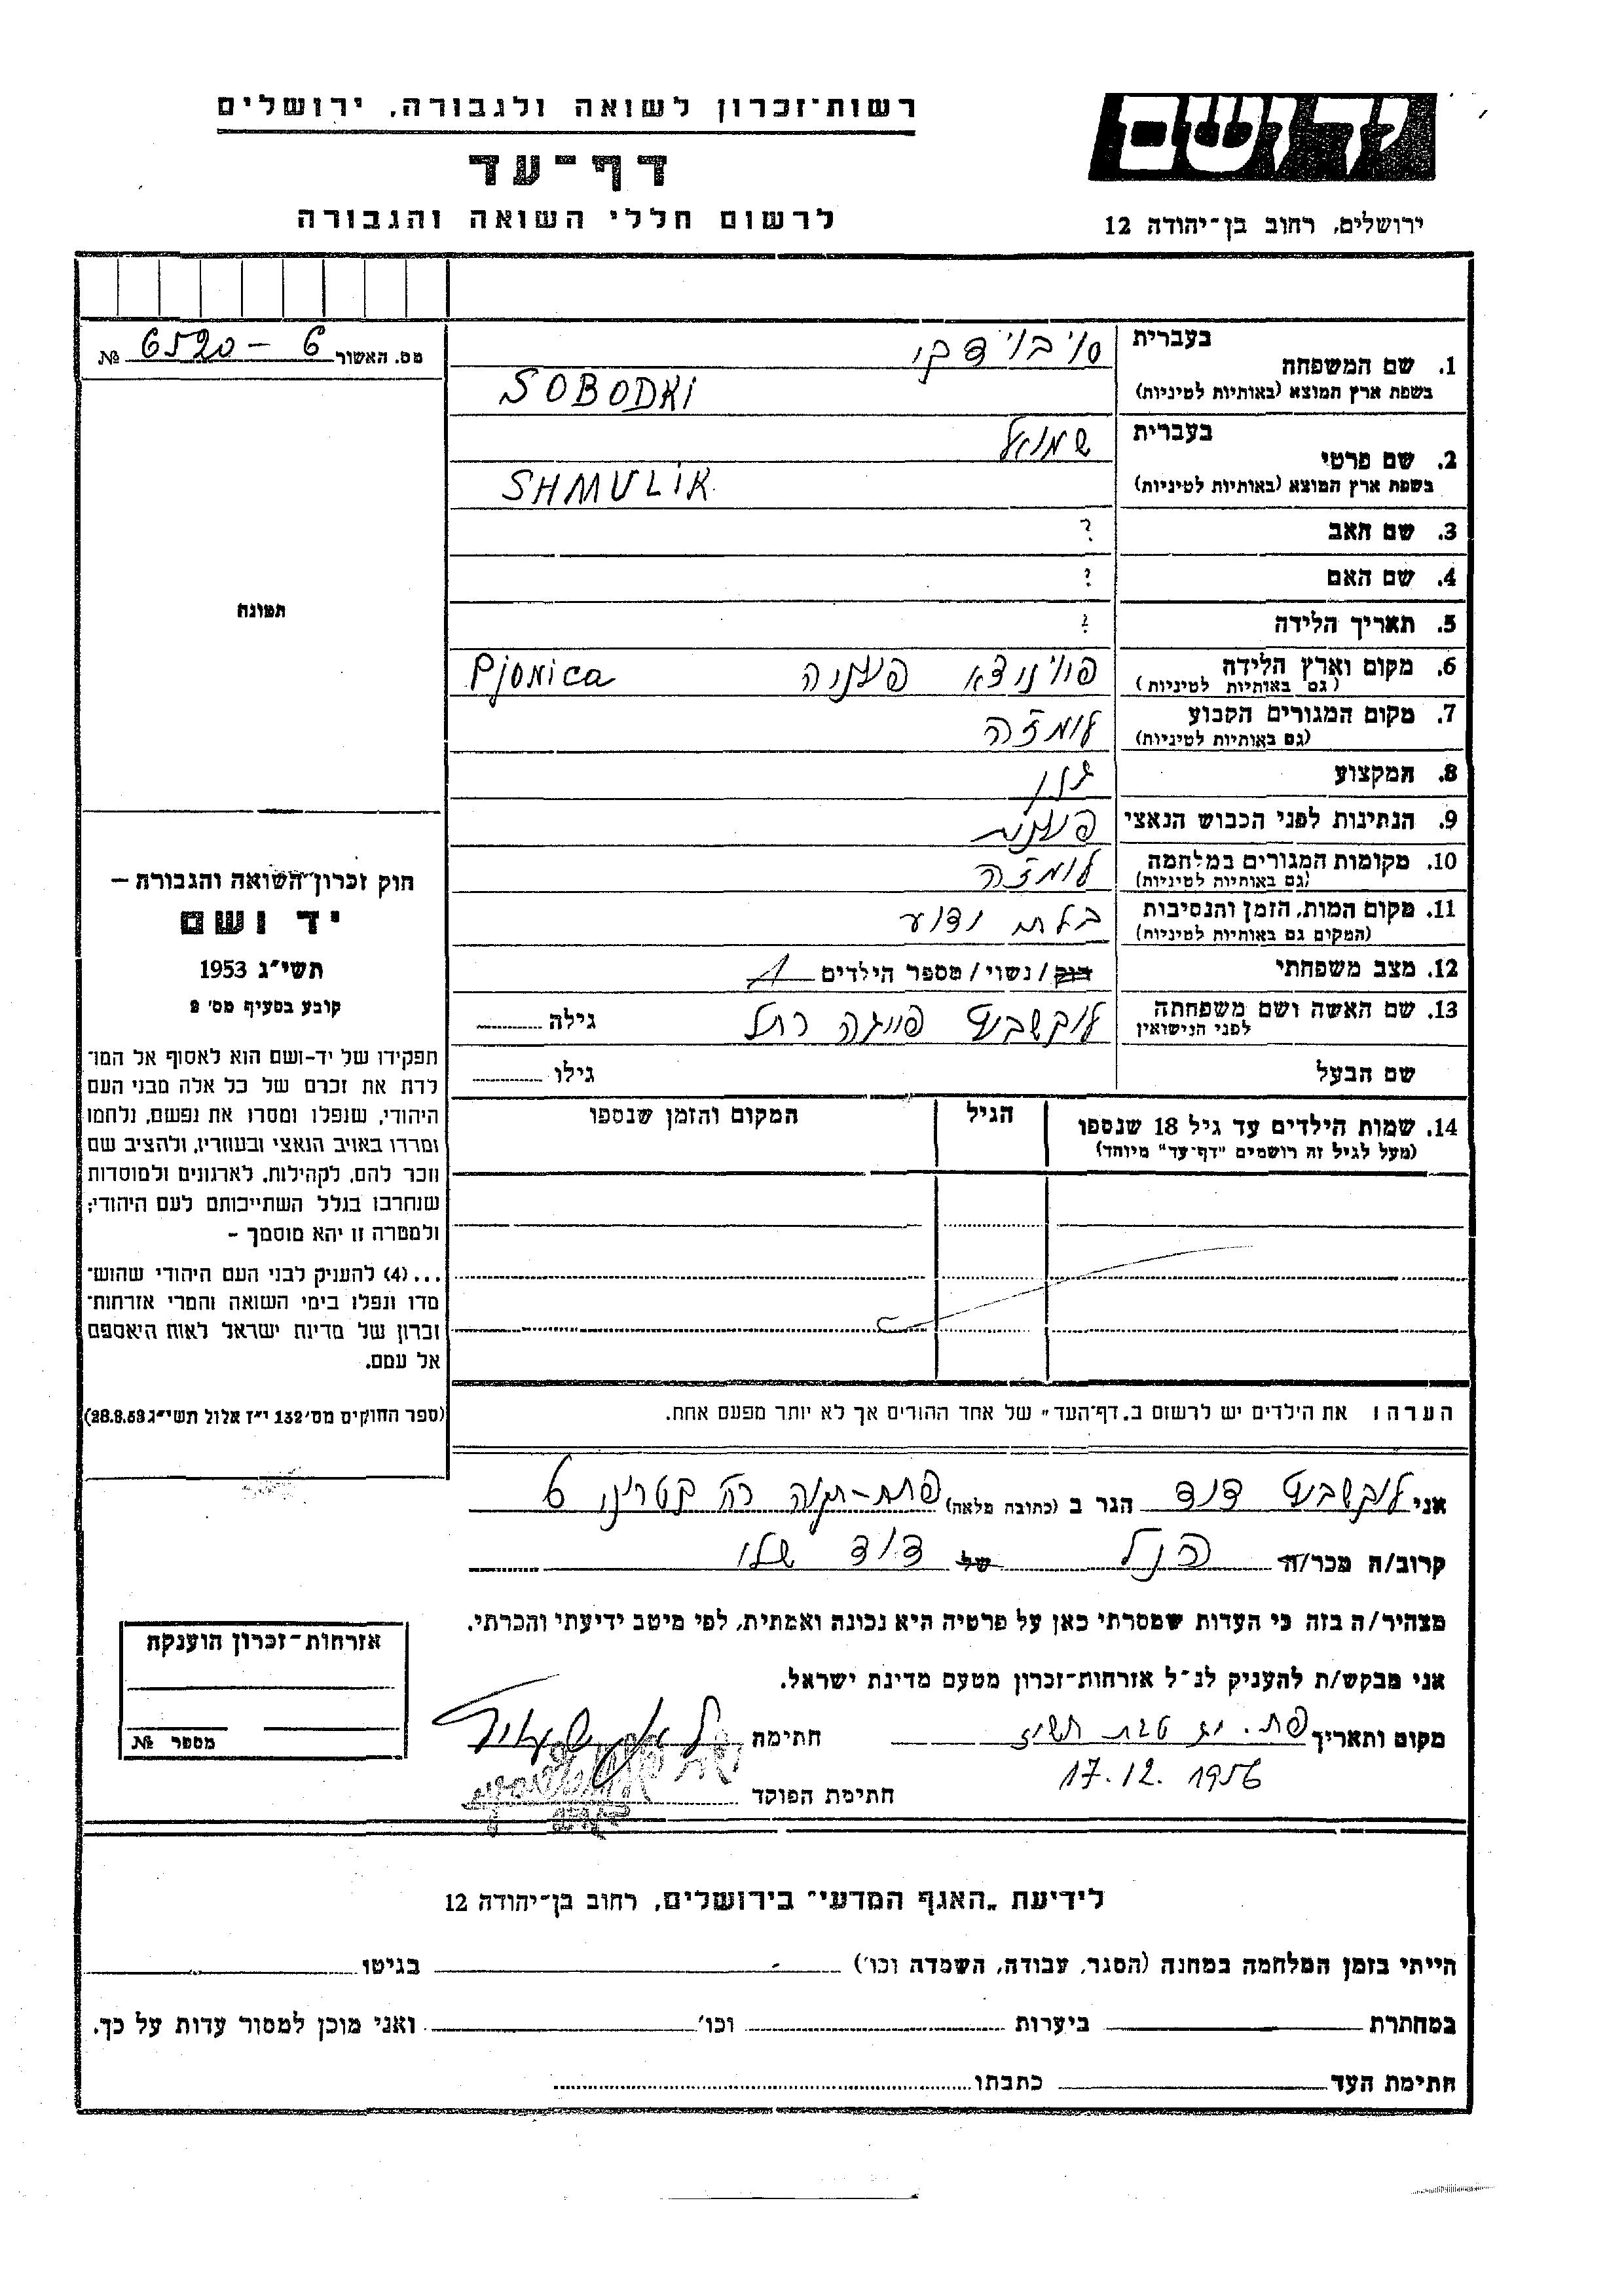 יד ושם
ירושלים, רחוב בן־יהודה 12
רשות־זכרון לשואה ולגבורה, ירושלים
דף־עד
לרשום חללי השואה והגבורה
מס. האשור 6520 – 6 №
1. שם המשפחה
בעברית
בשפת ארץ המוצא (באותיות לטיניות)
SOBODKI
2. שם פרטי
בעברית שמואל
בשפת ארץ המוצא (באותיות לטיניות)
SHMULIK
3. שם האב ?
4. שם האם ?
5. תאריך הלידה ?
6. מקום וארץ הלידה
(גם באותיות לטיניות)
Pjonica
7. מקום המגורים הקבוע לומזה
(גם באותיות לטיניות)
8. המקצוע
9. הנתינות לפני הכבוש הנאצי
10. מקומות המגורים במלחמה לומזה
(גם באותיות לטיניות)
11. מקום המות, הזמן והנסיבות בלתי ידוע
(המקום גם באותיות לטיניות)
12. מצב משפחתי רוק / נשוי / מספר הילדים 1
13. שם האשה ושם משפחתה
לפני הנישואין
פייגה רחל גילה
שם הבעל גילו
14. שמות הילדים עד גיל 18 שנספו
(מעל לגיל זה רושמים "דף־עד" מיוחד)
הגיל
המקום והזמן שנספו
הערה: את הילדים יש לרשום ב„דף־העד" של אחד ההורים אך לא יותר מפעם אחת.
תמונה
חוק זכרון־השואה והגבורה –
יד ושם
תשי"ג 1953
קובע בסעיף מס' 2
תפקידו של יד-ושם הוא לאסוף אל המו־
לדת את זכרם של כל אלה מבני העם
היהודי, שנפלו ומסרו את נפשם, נלחמו
ומרדו באויב הנאצי ובעוזריו, ולהציב שם
וזכר להם, לקהילות, לארגונים ולמוסדות
שנחרבו בגלל השתייכותם לעם היהודי;
ולמטרה זו יהא מוסמך –
...(4) להעניק לבני העם היהודי שהוש־
מדו ונפלו בימי השואה והמרי אזרחות־
זכרון של מדינת ישראל לאות היאספם
אל עמם.
(ספר החוקים מס' 132 י"ז אלול תשי"ג 28.8.53)
אני דוד הגר ב (כתובת מלאה) פתח-תקוה רח' 6
קרוב/ה מכר/ה הנ"ל של דוד שלי
מצהיר/ה בזה כי העדות שמסרתי כאן על פרטיה היא נכונה ואמתית, לפי מיטב ידיעתי והכרתי.
אני מבקש/ת להעניק לנ"ל אזרחות-זכרון מטעם מדינת ישראל.
מקום ותאריך טבת תשי"ז חתימה
17.12.1956
חתימת הפוקד
אזרחות-זכרון הוענקה
מספר №
לידיעת „האגף המדעי" בירושלים, רחוב בן־יהודה 12
הייתי בזמן המלחמה במחנה (הסגר, עבודה, השמדה וכו') בגיטו
במחתרת ביערות וכו' ואני מוכן למסור עדות על כך.
חתימת העד כתבתו